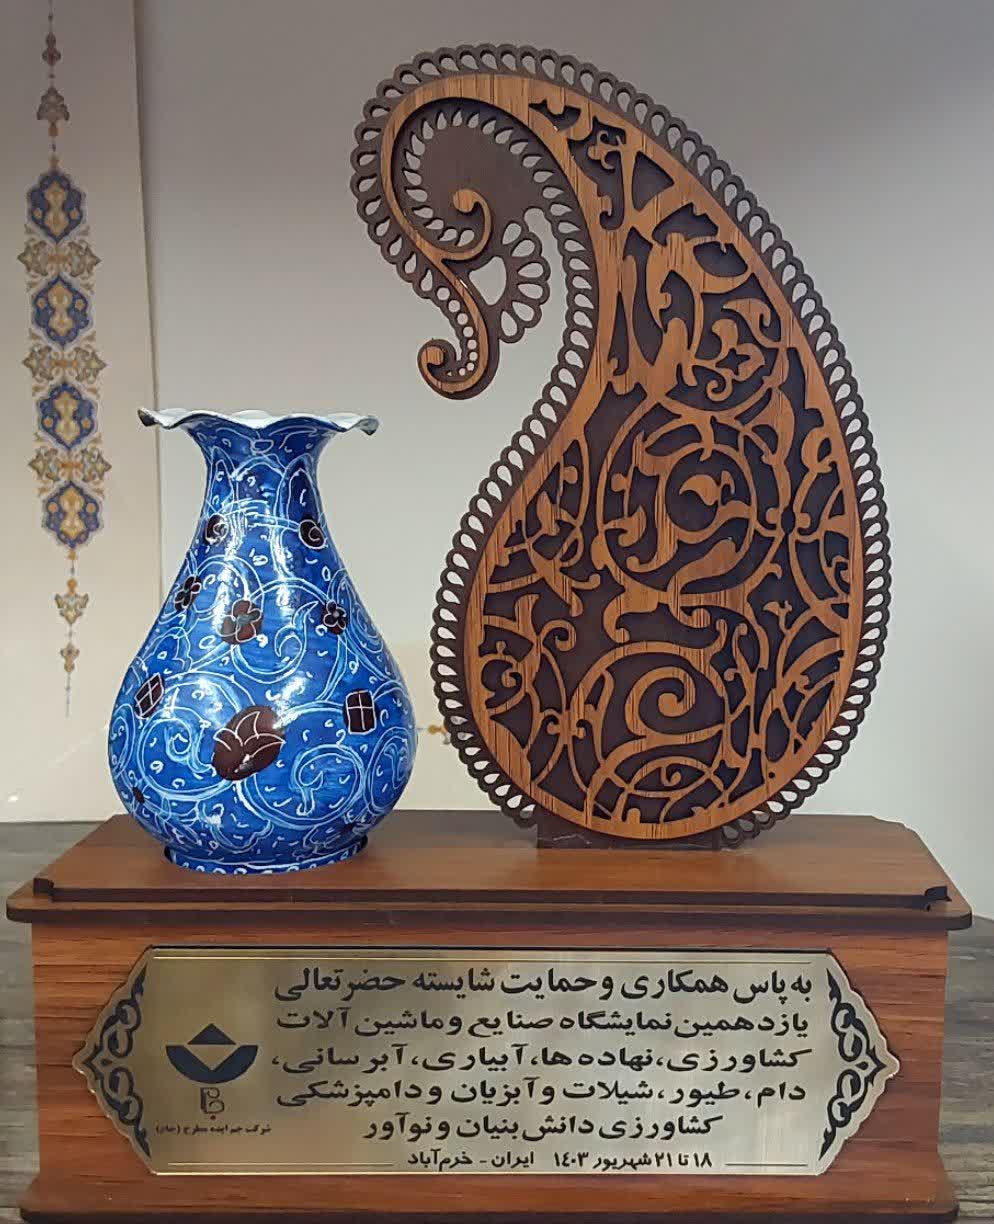 به پاس همکاری و حمایت شایسته حضرتعالی
یازدهمین نمایشگاه صنایع و ماشین آلات
کشاورزی، نهاده ها، آبیاری، آبرسانی،
دام، طیور، شیلات و آبزیان و دامپزشکی
کشاورزی دانش بنیان و نوآور
۱۸ تا ۲۱ شهریور ۱۴۰۳ ایران - خرم‌آباد
شرکت